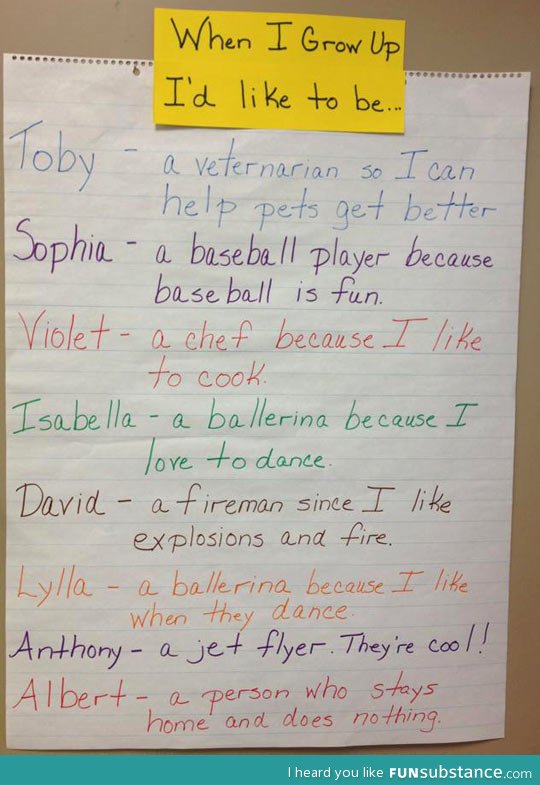 When I Grow Up
I'd like to be...
Toby - a veternarian so I can
help pets get better
Sophia - a baseball player because
baseball is fun.
Violet - a chef because I like
to cook.
Isabella - a ballerina because I
love to dance.
David - a fireman since I like
explosions and fire.
Lylla - a ballerina because I like
when they dance.
Anthony - a jet flyer. They're cool!
Albert - a person who stays
home and does nothing.
I heard you like FUNsubstance.com